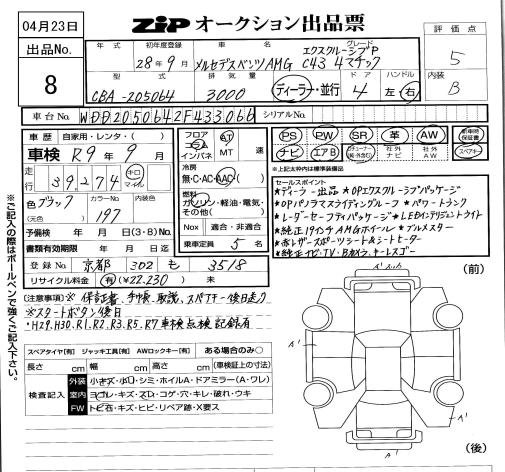 04月23日
出品No.
8
ZIP オークション出品票
評価点
5
内装
B
年式
初年度登録
28年9月
車名
メルセデスベンツ/AMG
グレード
エクスクルーシブP
C43 4マチック
型式
CBA-205064
排気量
3000
ディーラー・並行
ドア
4
ハンドル
左・右
車台No.
WDD2050642F433066
シリアルNo.
車歴
自家用・レンタ・( )
車検
R9年9月
走行
39,274
キロ
マイル
色
ブラック
(元色)
カラーNo.
197
内装色
予備検 月 日 (3・8)No.
書類有効期限 年 月 日
登録No.
京都 302 も 3518
リサイクル料金 有(¥22,230) 未
フロア
コラム
インパネ
AT
MT
速
冷房
無・C・AC・AAC( )
燃料
ガソリン・軽油・電気・
その他( )
Nox 適合・非適合
乗車定員 5 名
PS
PW
SR
革
AW
新車時保証書
ナビ
エアB
社外ナビ
社外AW
スペアキー
※上記太枠内は標準装備
セールスポイント
★ディーラー出品 ★OPエクスクルーシブパッケージ
★OPパノラマスライディングルーフ ★パワートランク
★レーダーセーフティパッケージ★LEDインテリジェントライト
★純正19インチAMGホイール ★ブルメスター
★赤レザースポーツシート&シートヒーター
★純正ナビ・TV・Bカメラ・キーレスゴー
(注意事項)※保証書、手帳、取説、スペアキー後日送り
※スタートボタン後日
・H29.H30.R1.R2.R3.R5.R7車検点検記録有
※ご記入の際はボールペンで強くご記入下さい。
スペアタイヤ【有】 ジャッキ工具【有】 AWロックキー【有】 ある場合のみ○
長さ cm 幅 cm 高さ cm (車検証上の寸法)
検査記入
外装 小キズ・小凹・シミ・ホイルA・ドアミラー(A・ワレ)
室内 ヨゴレ・キズ・スレ・コゲ・穴・キレ・破れ・ウキ
FW トビ石・キズ・ヒビ・リペア跡・X要ス
(前)
A'
A'
A'
A'
(後)